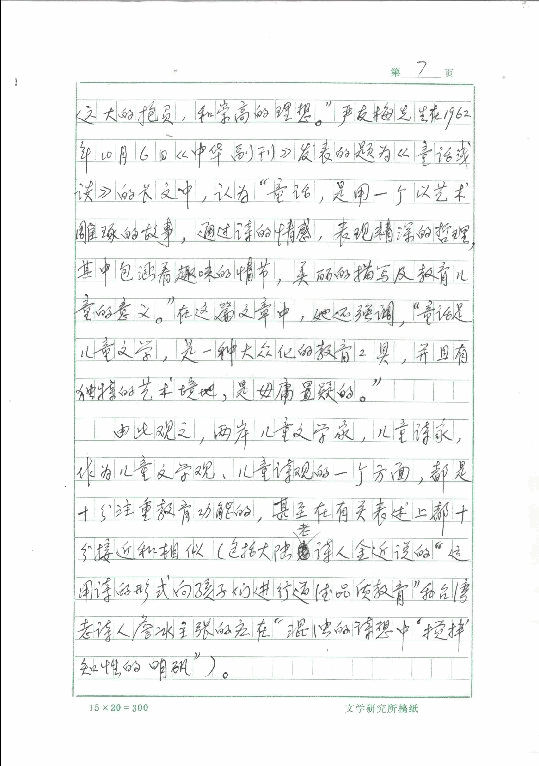 第 7 页
远大的抱负，和崇高的理想。”严友梅先生在1962
年10月6日《中华副刊》发表的题为《童话浅
谈》的长文中，认为“童话，是用一个以艺术
雕琢的故事，通过诗的情感，表现精深的哲理，
其中包涵着趣味的情节，美丽的描写及教育儿
童的意义。”在这篇文章中，她还强调，“童话是
儿童文学，是一种大众化的教育工具，并且有
独特的艺术境地，是毋庸置疑的。”
由此观之，两岸儿童文学家，儿童诗家，
作为儿童文学观、儿童诗观的一个方面，都是
十分注重教育功能的，甚至在有关表述上都十
分接近和相似（包括大陆老诗人金近说的“运
用诗的形式向孩子们进行道德品质教育”和台湾
老诗人詹冰主张的应在“混浊的诗想中‘搅拌’
知性的明矾”）。
15×20=300
文学研究所稿纸